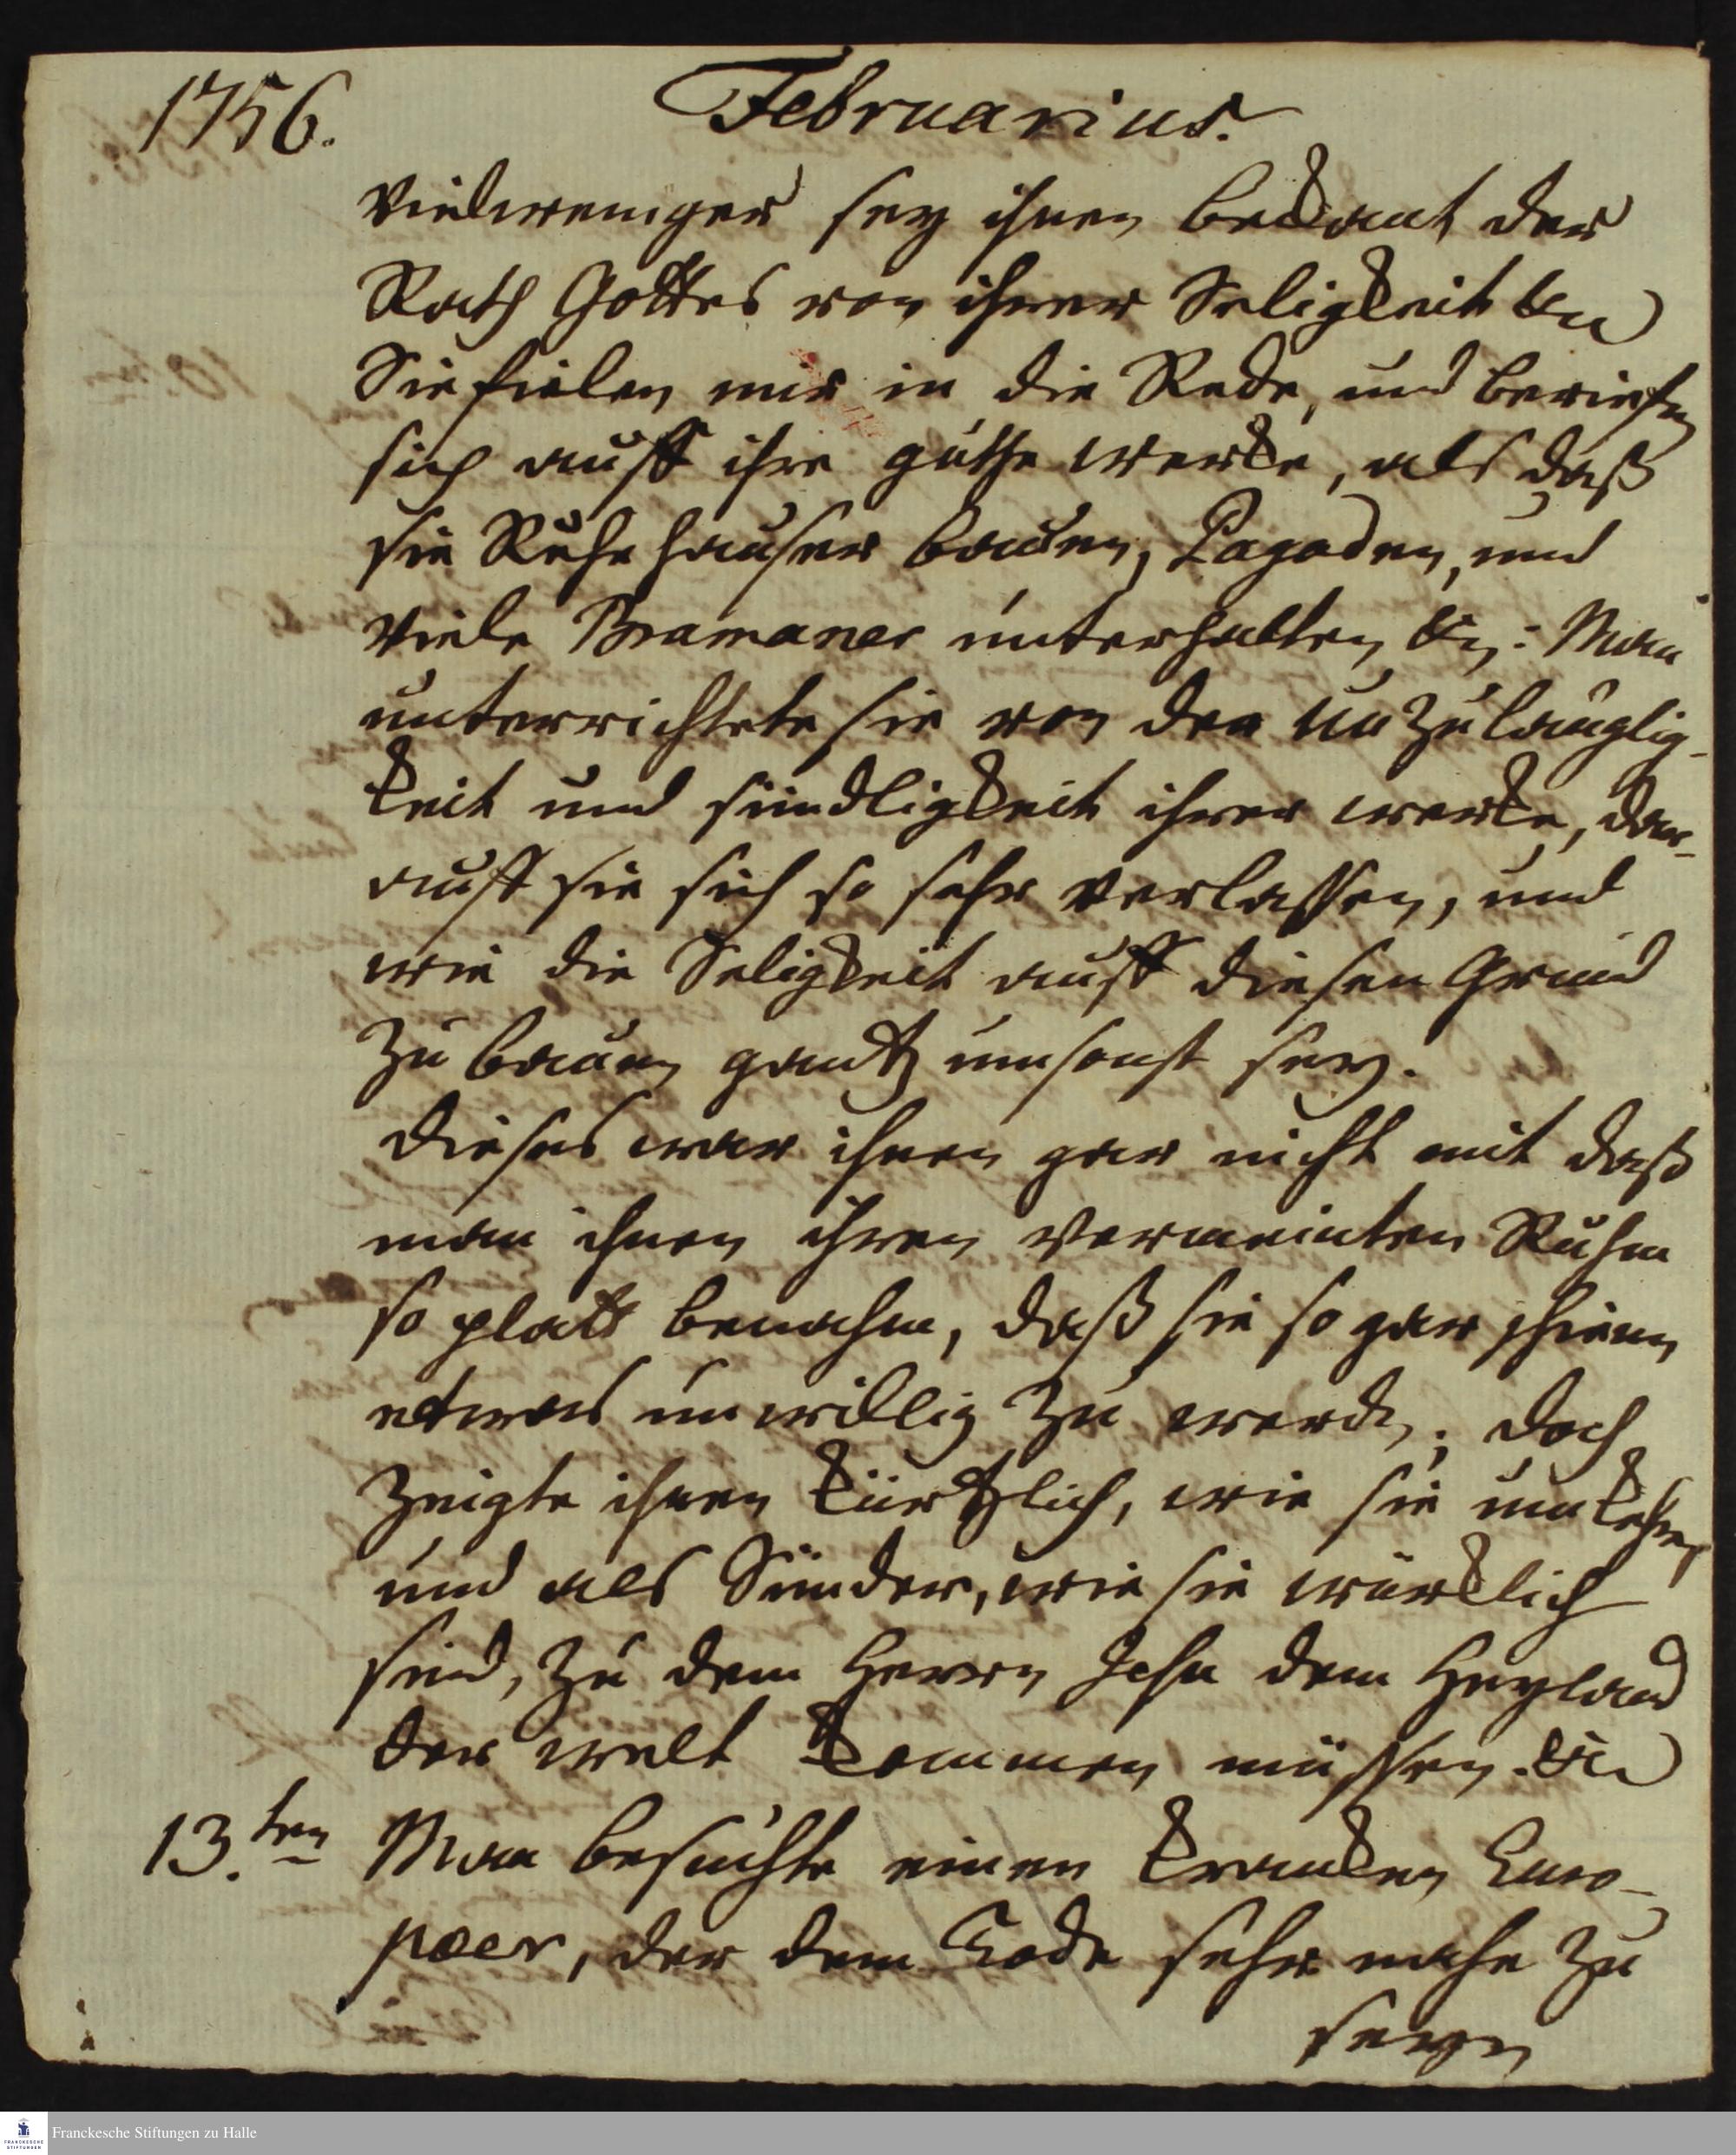 1756. Februarius.
Vielweniger sey ihnen bekant der
Rath Gottes von ihrer Seligkeit &c
Sie fielen mir in die Rede, und beriefen
sich auff ihre guthe wercke, als daß
sie Ruhe häuser bauen, Pagoden, und
viele Bramaner unterhalten, &c: Man
unterrichtete sie von der unzulänglig-
keit und sündligkeit ihrer wercke, dar-
auff sie sich so sehr verlassen, und
wie die Seligkeit auff diesen Grund
zu bauen gantz umsonst sey.
Dieses war ihnen gar nicht mit daß
man ihnen ihren vermeinten Ruhm
so platt benahm, daß sie so gar schienen
etwas unwillig zu werden; doch
zeigte ihnen kürtzlich, wie sie umkehren
und als Sünder, wie sie würklich
sind, zu dem Herrn Jesu dem Heyland
der welt kommen müssen. &c
13.ten Man besuchte einen krancken Euro-
paeer, der dem Tode sehr nahe zu
seyn
Franckesche Stiftungen zu Halle
FRANCKESCHE
STIFTUNGEN